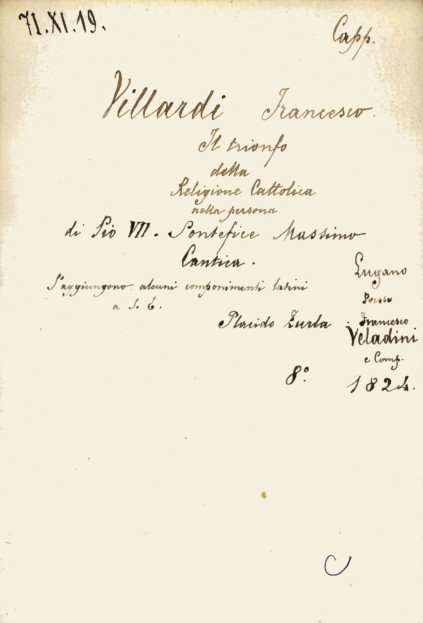 71.XI.19.
Capp.
Villardi Francesco.
Il trionfo
della
Religione Cattolica
nella persona
di Pio VII. Pontefice Massimo
Cantica.
S'aggiungono alcuni componimenti latini
a S. E.
Placido Zurla.
Lugano
Presso
Francesco
Veladini
e Comp.
8.° 1824.